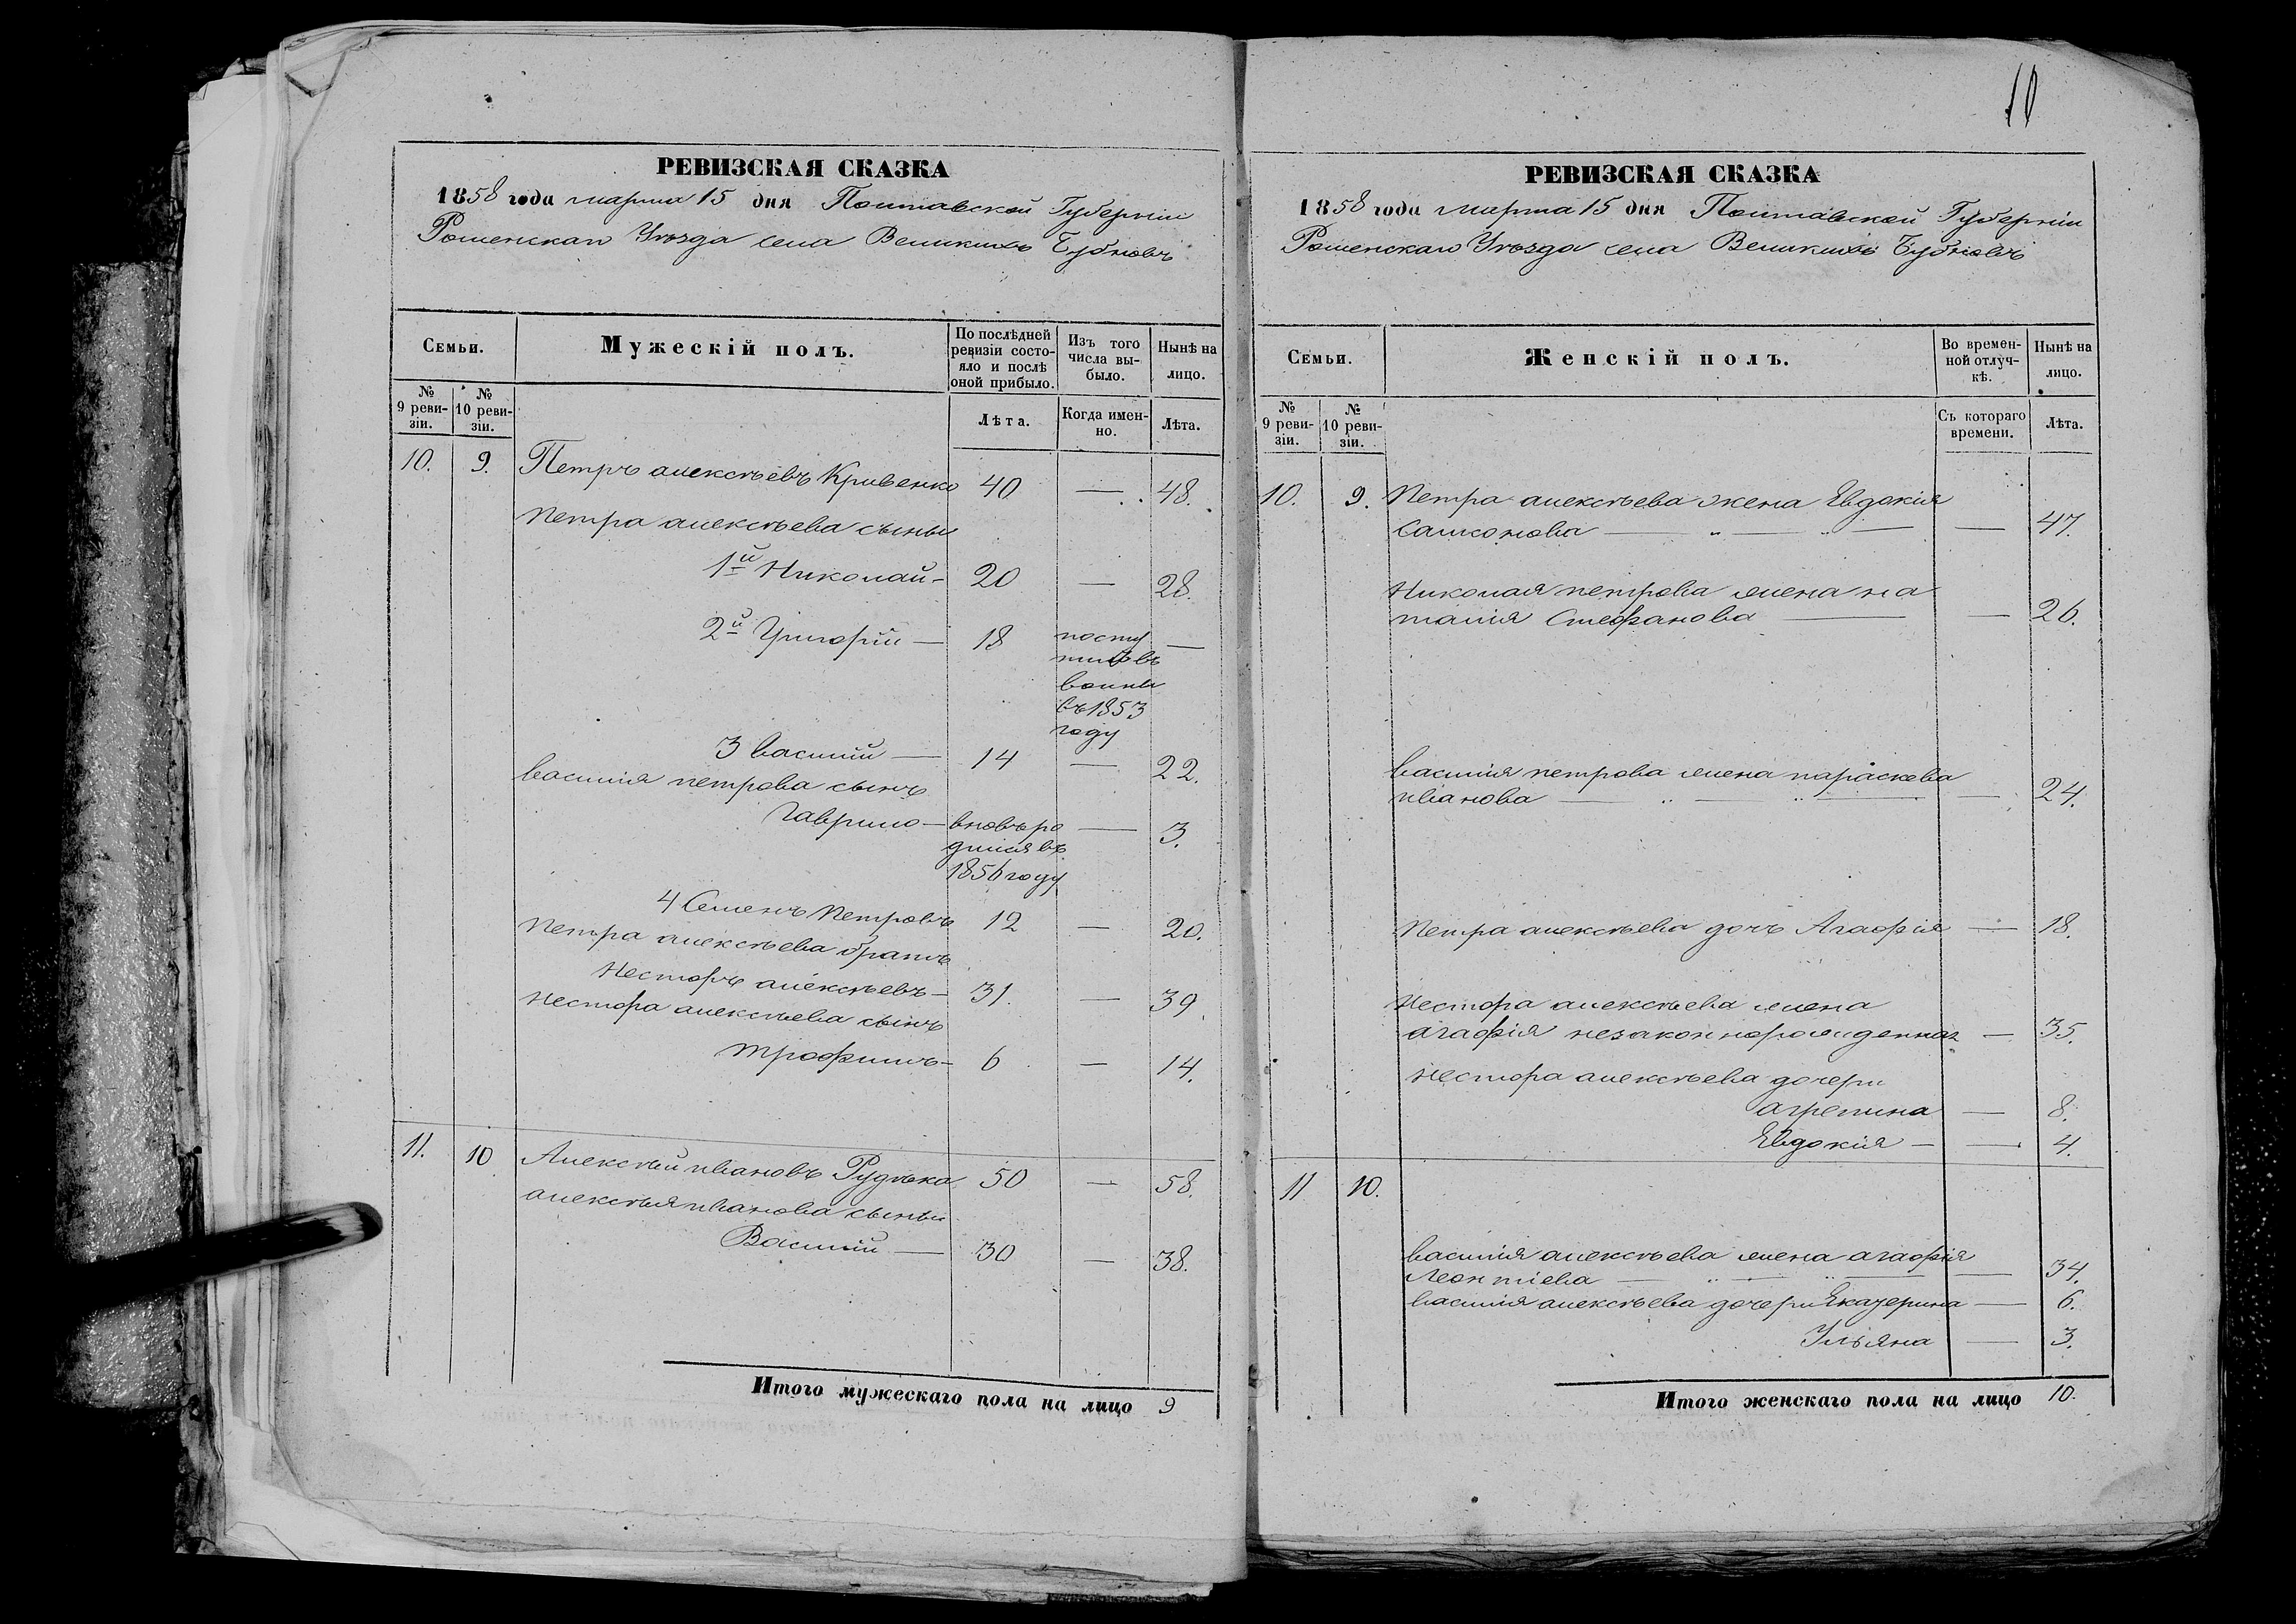 10
РЕВИЗСКАЯ СКАЗКА
1858 года марта 15 дня Полтавской Губерніи
Роменскаго Уѣзда села Великихъ Бубновъ
Семьи.
Мужескій полъ.
По послѣдней ревизіи состояло и послѣ оной прибыло.
Изъ того числа выбыло.
Нынѣ на лицо.
№ 9 ревизіи.
№ 10 ревизіи.
Лѣта.
Когда именно.
Лѣта.
10. 9. Петръ алексѣевъ Кривенко 40 — 48.
Петра алексѣева сыны
1й Николай — 20 — 28.
2й Григорій — 18 посту —
пилъ въ
воины
въ 1853
году
3 василій — 14 — 22.
василія петрова сынъ
Гаврило — вновь ро — 3.
дился въ
1856 году
4 Семенъ Петровъ 12 — 20.
Петра алексѣева братъ
Несторъ алексѣевъ — 31. — 39.
Нестора алексѣева сынъ
трофимъ — 6 — 14.
11. 10 Алексѣй ивановъ Рудѣка 50 — 58.
алексѣя иванова сыны
Василій — 30 — 38.
Итого мужескаго пола на лицо 9
РЕВИЗСКАЯ СКАЗКА
1858 года марта 15 дня Полтавской Губерніи
Роменскаго Уѣзда села Великихъ Бубновъ
Семьи.
Женскій полъ.
Во временной отлучкѣ.
Нынѣ на лицо.
№ 9 ревизіи.
№ 10 ревизіи.
Съ котораго времени.
Лѣта.
10. 9. Петра алексѣева жена Евдокія
самсонова — „ — „ — — 47.
Николая петрова жена на
талія Стефанова — — 26.
василія петрова жена параскева
иванова — „ — „ — — 24.
Петра алексѣева дочь Агафія — 18.
Нестора алексѣева жена
агафія незаконнорожденная — 35.
Нестора алексѣева дочери
агрепина — 8.
Евдокія — — 4.
11 10.
василія алексѣева жена агафія
Леонтіева — „ — „ — — 34.
василія алексѣева дочери Екатерина — 6.
Ульяна — 3.
Итого женскаго пола на лицо 10.